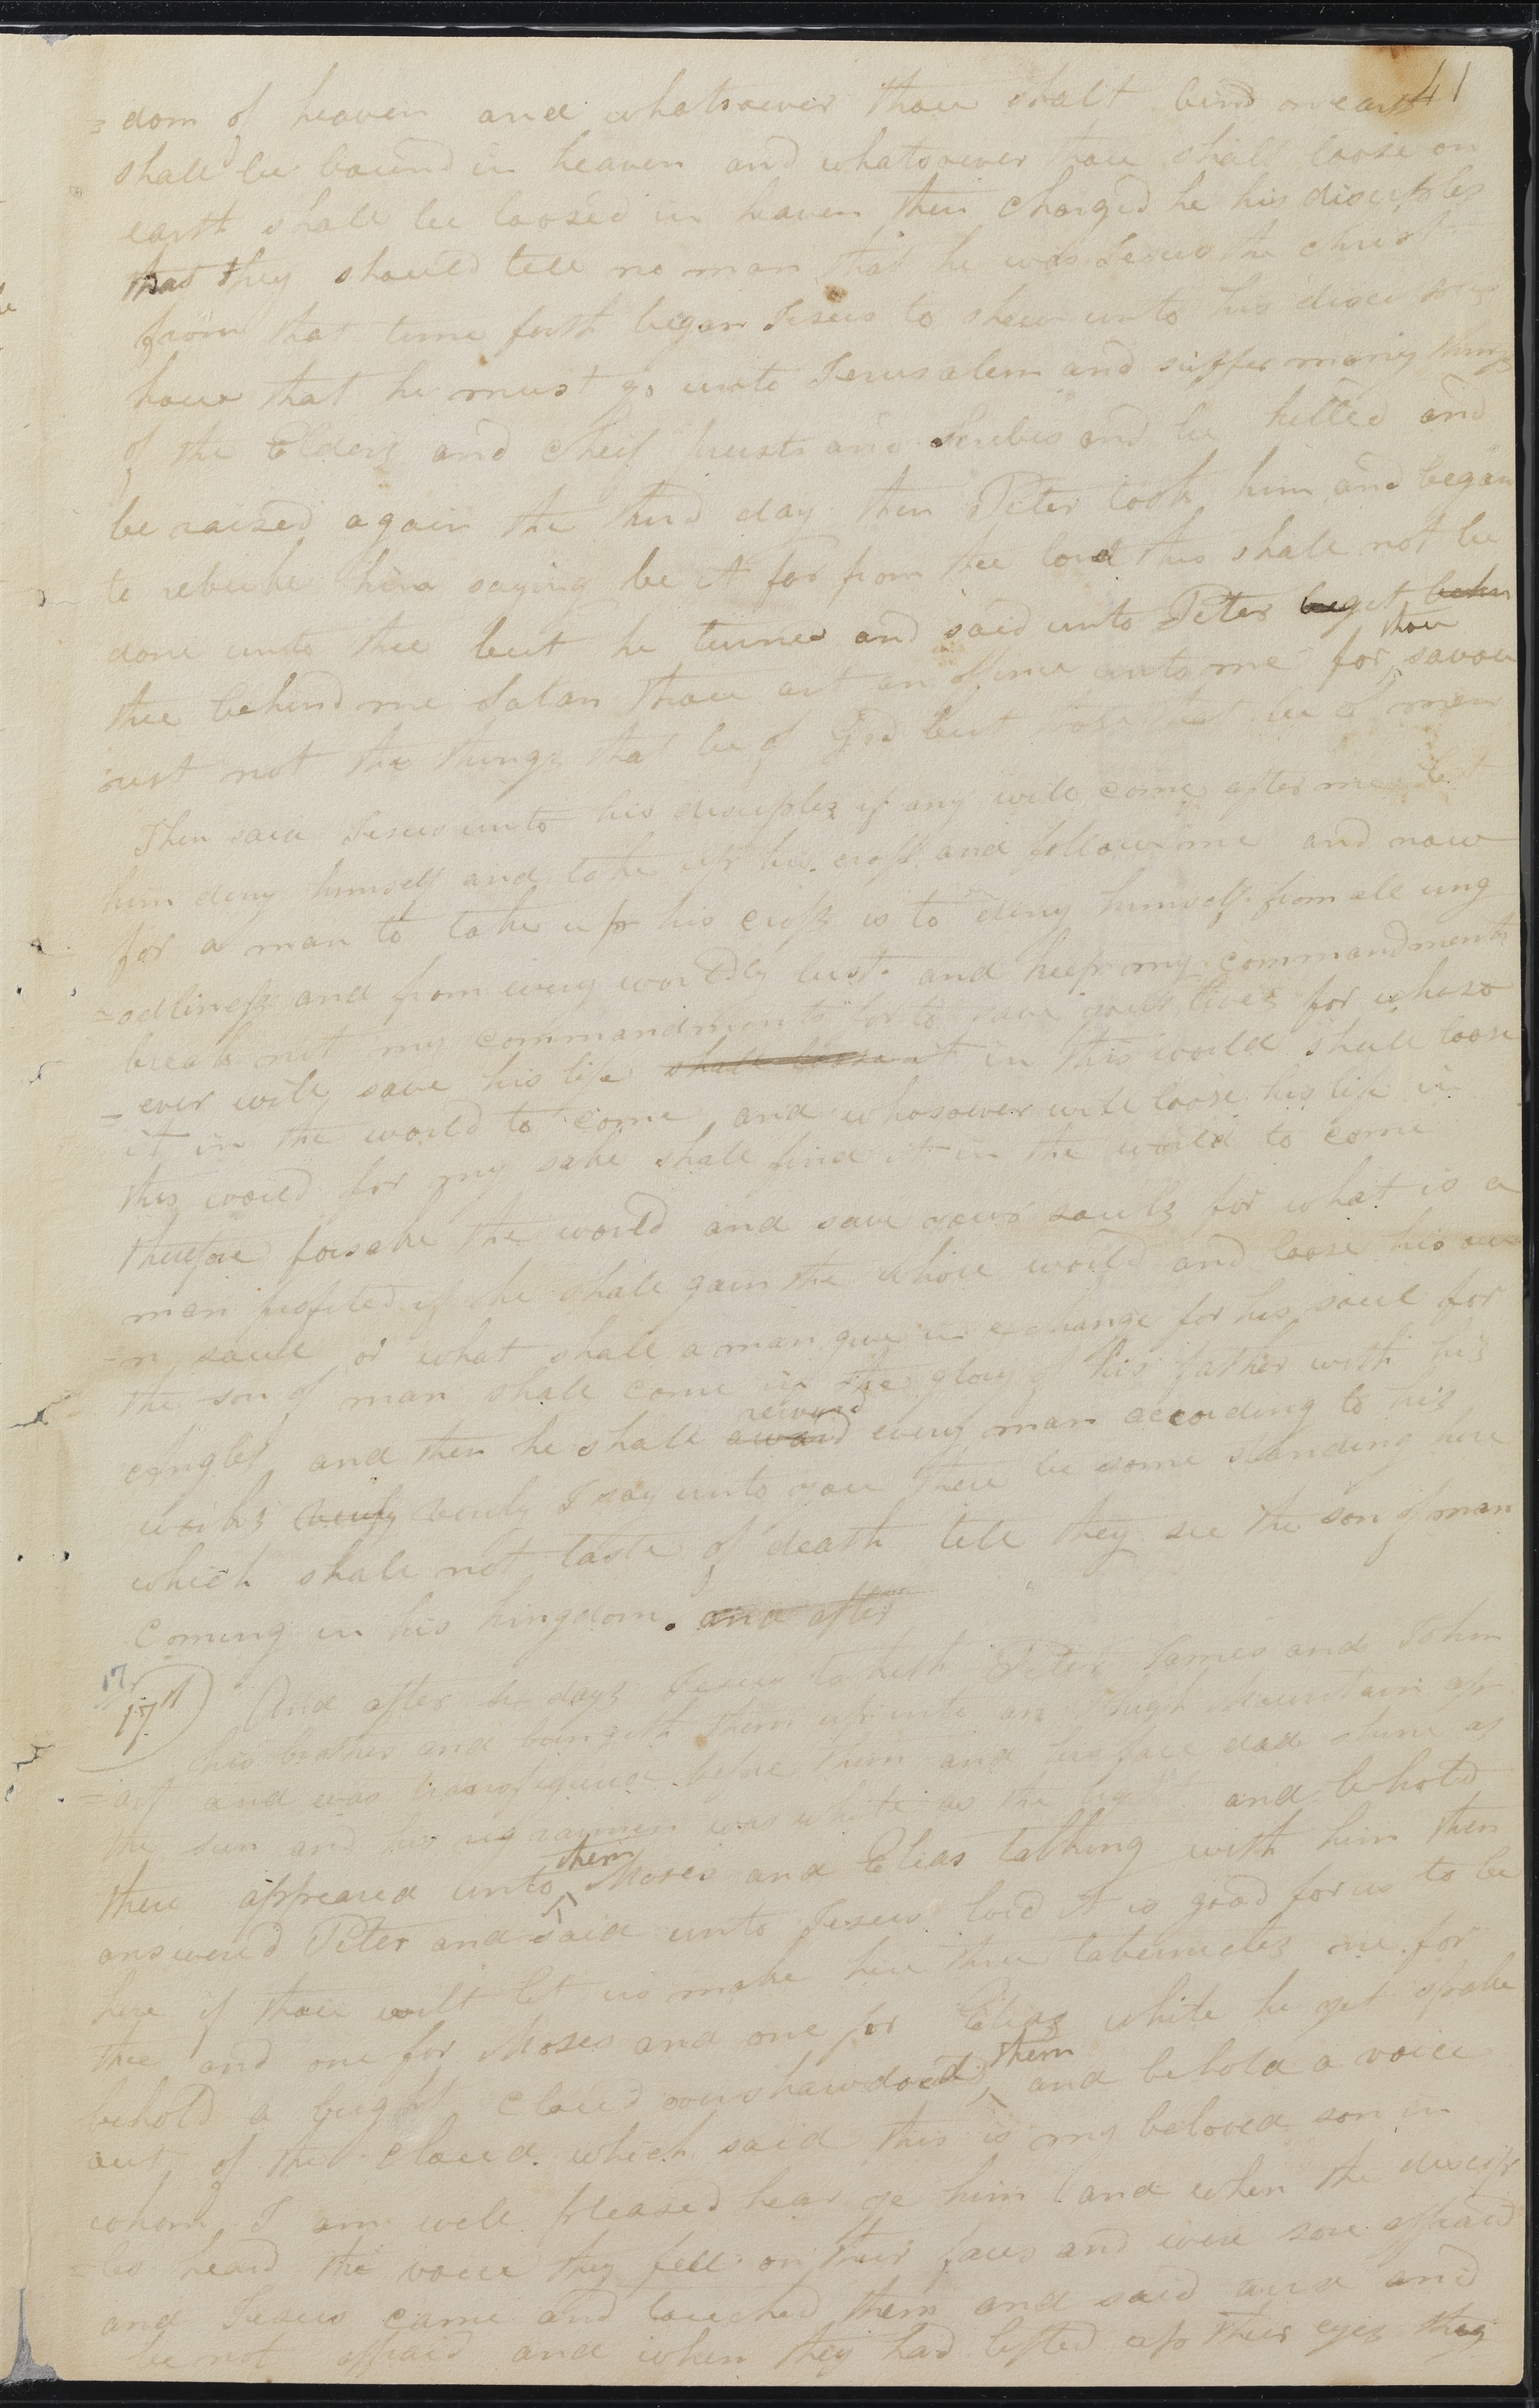 41
=dom of heaven and whatsoever thou shalt bind on earth
shall be bound in heaven and whatsoever thou shalt loose on
earth shall be loosed in heaven then charged he his disciples
that they should tell no man that he was Jesus the christ
from that time forth began Jesus to shew unto his disciples
how that he must go unto Jerusalem and suffer many things
of the Elders and cheif priests and Scribes and be killed and
be raised again the third day then Peter took him and began
to rebuke him saying be it far from thee lord this shall not be
done unto thee but he turned and said unto Peter get
thee behind me Satan thou art an offence unto me for thou savou
rest not the things that be of God but those that be of men
Then said Jesus unto his disciples if any will come after me let
him deny himself and take up his cross and follow me and now
for a man to take up his cross is to deny himself from all ung
=odliness and from every worldly lust and keep my commandments
break not my commandments for to save your lives for whoso
=ever will save his life shall loose it in this world shall loose
it in the world to come and whosoever will loose his life in
this world for my sake shall find it in the world to come
therefore forsake the world and save your souls for what is a
man profited if he shall gain the whole world and loose his ow
=n soul or what shall a man give in exchange for his soul for
the son of man shall come in the glory of his father with his
Angles and then he shall award reward every man according to his
works verily verily I say unto you there be some standing here
which shall not taste of death till they see the son of man
coming in his kingdom. and after
17
17th And after six days Jesus taketh Peter James and John
his brother and bringeth them up into an high Mountain ap
=art and was transfigured before them and his face did shine as
the sun and his raiment was white as the light and behold
there appeared unto them Moses and Elias talking with him then
answerd Peter and said unto Jesus lord it is good for us to be
here if thou wilt let us make here three tabernacles one for
thee and one for Moses and one for Elias while he yet spake
behold a bright cloud overshawdoed them and behold a voice
out of the cloud which said this is my beloved son in
whom I am well pleased hear ye him and when the discip
=les heard the voice they fell on their faces and were sore affraid
and Jesus came and touched them and said arise and
be not affraid and when they had lifted up their eyes they